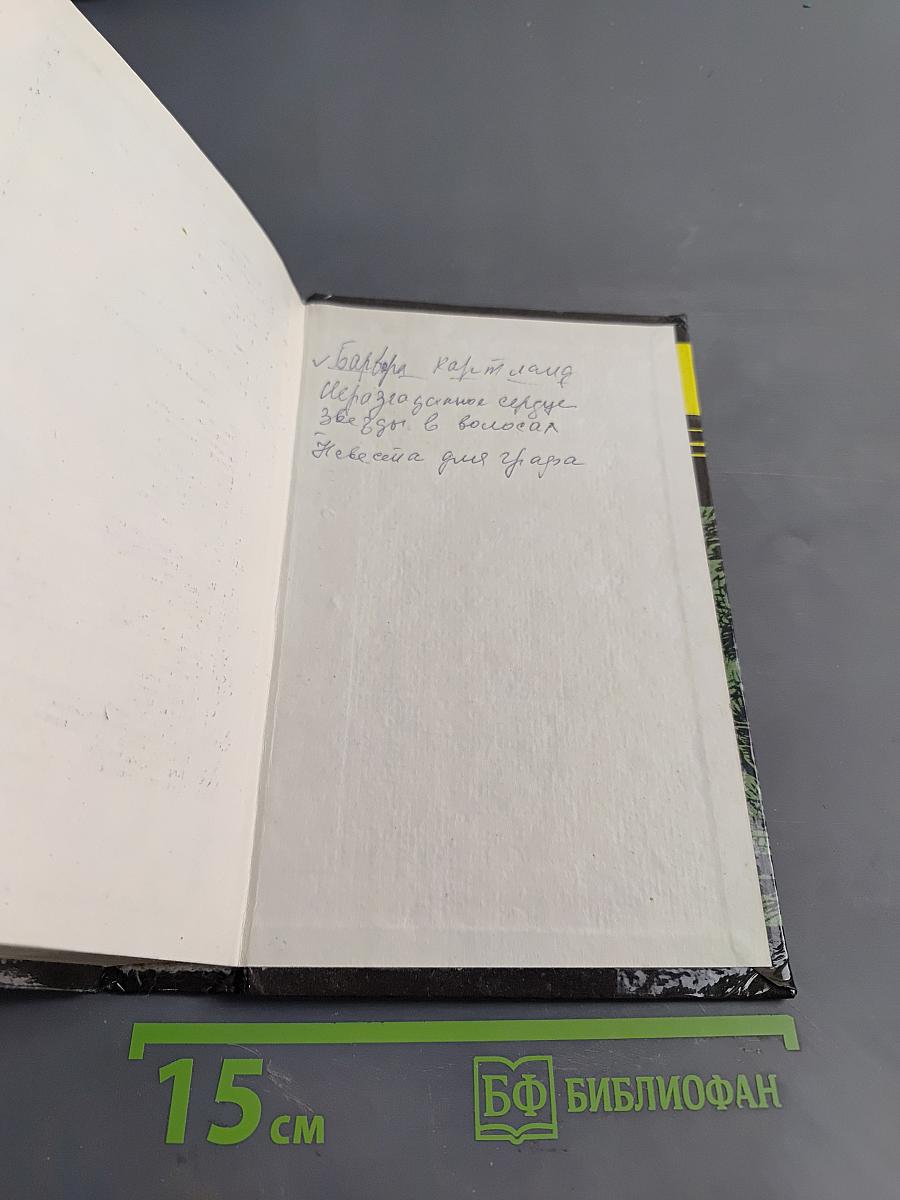 ✓ Барбара Картланд
Неразгаданное сердце
Звезды в волосах
– Невеста для графа
15 см
БФ БИБЛИОФАН